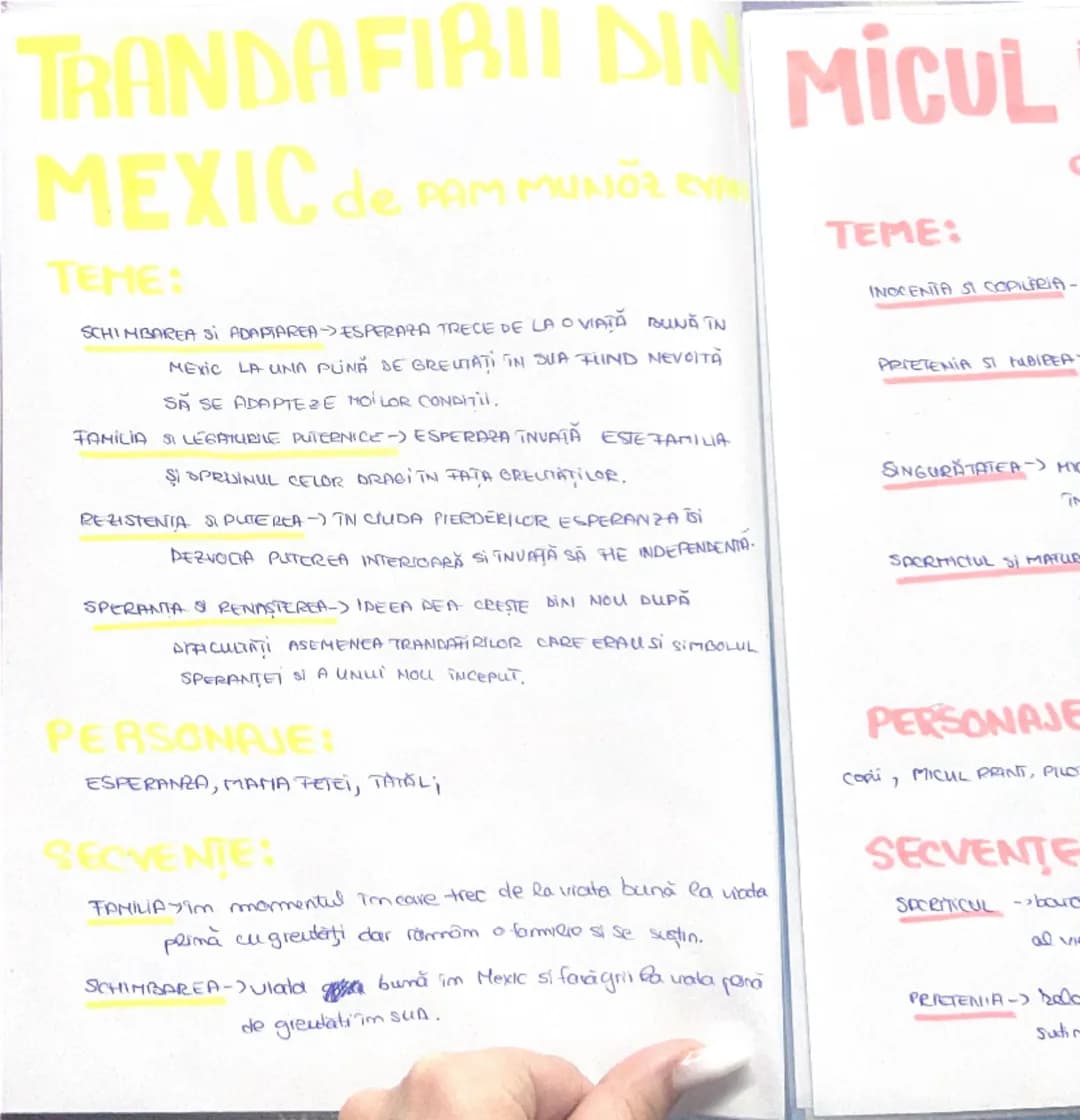 TRANDAFIRII DIN
MEXIC de PAM MUNÕZ
TEME:
SCHIMBAREA Si ADAPTAREA -> ESPERAZA TRECE DE LA O VIAȚĂ BUNĂ ÎN
MEXIC LA UNA PLINĂ DE GREUTĂȚI ÎN SUA FIIND NEVOITĂ
SĂ SE ADAPTEZE NOILOR CONDIȚII.
FAMILIA SI LEGATURILE PUTERNICE -> ESPERAZA ÎNVAȚĂ ESTE FAMILIA
ȘI SPRIJINUL CELOR DRAGI ÎN FAȚA GREUTĂȚILOR.
REZISTENTA SI PUTEREA -> ÎN CIUDA PIERDERILOR ESPERANZA ÎSI
DEZVOLTA PUTEREA INTERIOARĂ SI ÎNVAȚĂ SĂ FIE INDEPENDENTĂ.
SPERANTA SI RENAȘTEREA -> IDEEA DEA CREȘTE DIN NOU DUPĂ
DIFICULTĂȚI ASEMENEA TRANDAFIRILOR CARE ERAU SI SIMBOLUL
SPERANȚEI SI A UNUI NOU ÎNCEPUT.
PERSONAJE:
ESPERANZA, MAMA FETEI, TATĂL;
SECVENȚE:
FAMILIA -> în momentul în care trec de la viata bună la viata
plină cu greutăți dar rămân o familie si se susțin.
SCHIMBAREA -> viata bună în Mexic si fară griji la viata plină
de greutati în SUA.
MICUL
TEME:
INOCENTA SI COPILĂRIA -
PRIETENIA SI IUBIREA -
SINGURĂTATEA ->
SACRIFICIUL SI
PERSONAJE
copii, MICUL PRINT,
SECVENȚE
SACRIFICUL ->
al
PRIETENIA ->